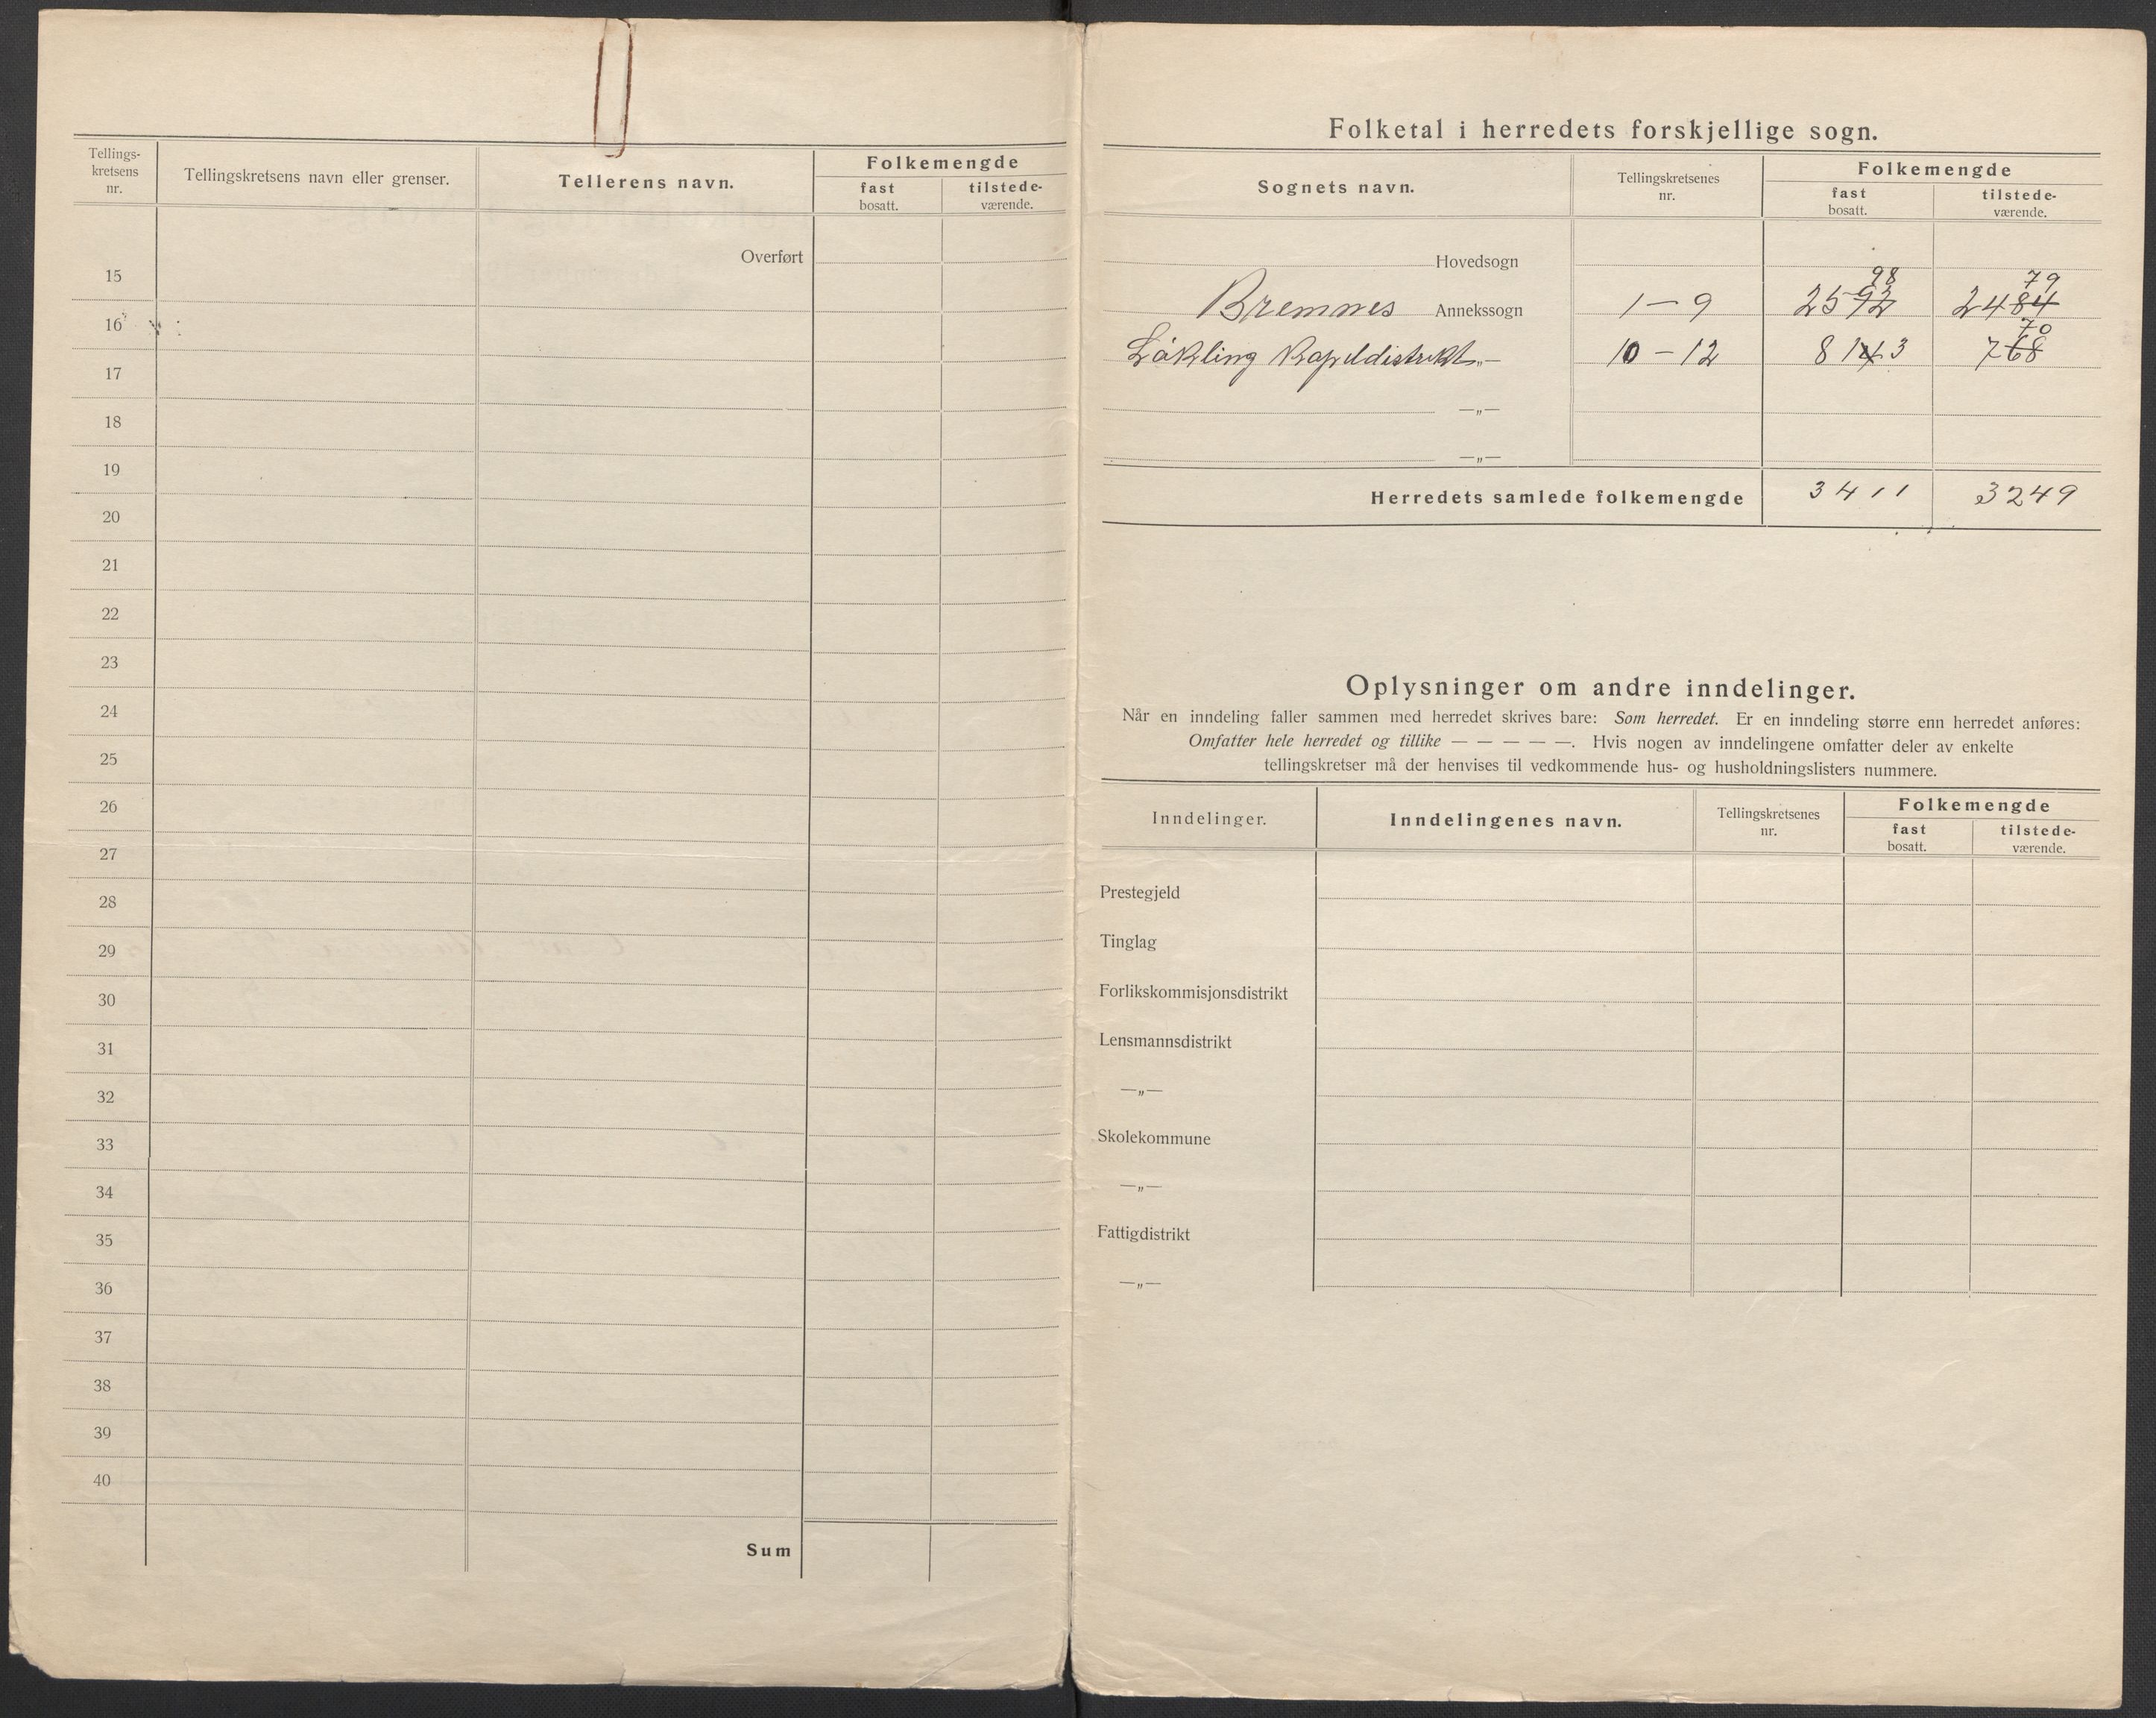 Tellings-
kretsens
nr.
Tellingskretsens navn eller grenser.
Tellerens navn.
Folkemengde
fast
bosatt.
tilstede-
værende.
Overført
15
16
17
18
19
20
21
22
23
24
25
26
27
28
29
30
31
32
33
34
35
36
37
38
39
40
Sum
Folketal i herredets forskjellige sogn.
Sognets navn.
Tellingskretsenes
nr.
Folkemengde
fast
bosatt.
tilstede-
værende.
Hovedsogn
98 79
Bremnes Annekssogn 1 – 9 2592 2484
70
Lökling Kapeldistrikt —„— 10 – 12 8143 768
—„—
—„—
Herredets samlede folkemengde 3411 3249
Oplysninger om andre inndelinger.
Når en inndeling faller sammen med herredet skrives bare: Som herredet. Er en inndeling større enn herredet anføres:
Omfatter hele herredet og tillike — — — — —. Hvis nogen av inndelingene omfatter deler av enkelte
tellingskretser må der henvises til vedkommende hus- og husholdningslisters nummere.
Inndelinger.
Inndelingenes navn.
Tellingskretsenes
nr.
Folkemengde
fast
bosatt.
tilstede-
værende.
Prestegjeld
Tinglag
Forlikskommisjonsdistrikt
Lensmannsdistrikt
—„—
Skolekommune
—„—
Fattigdistrikt
—„—